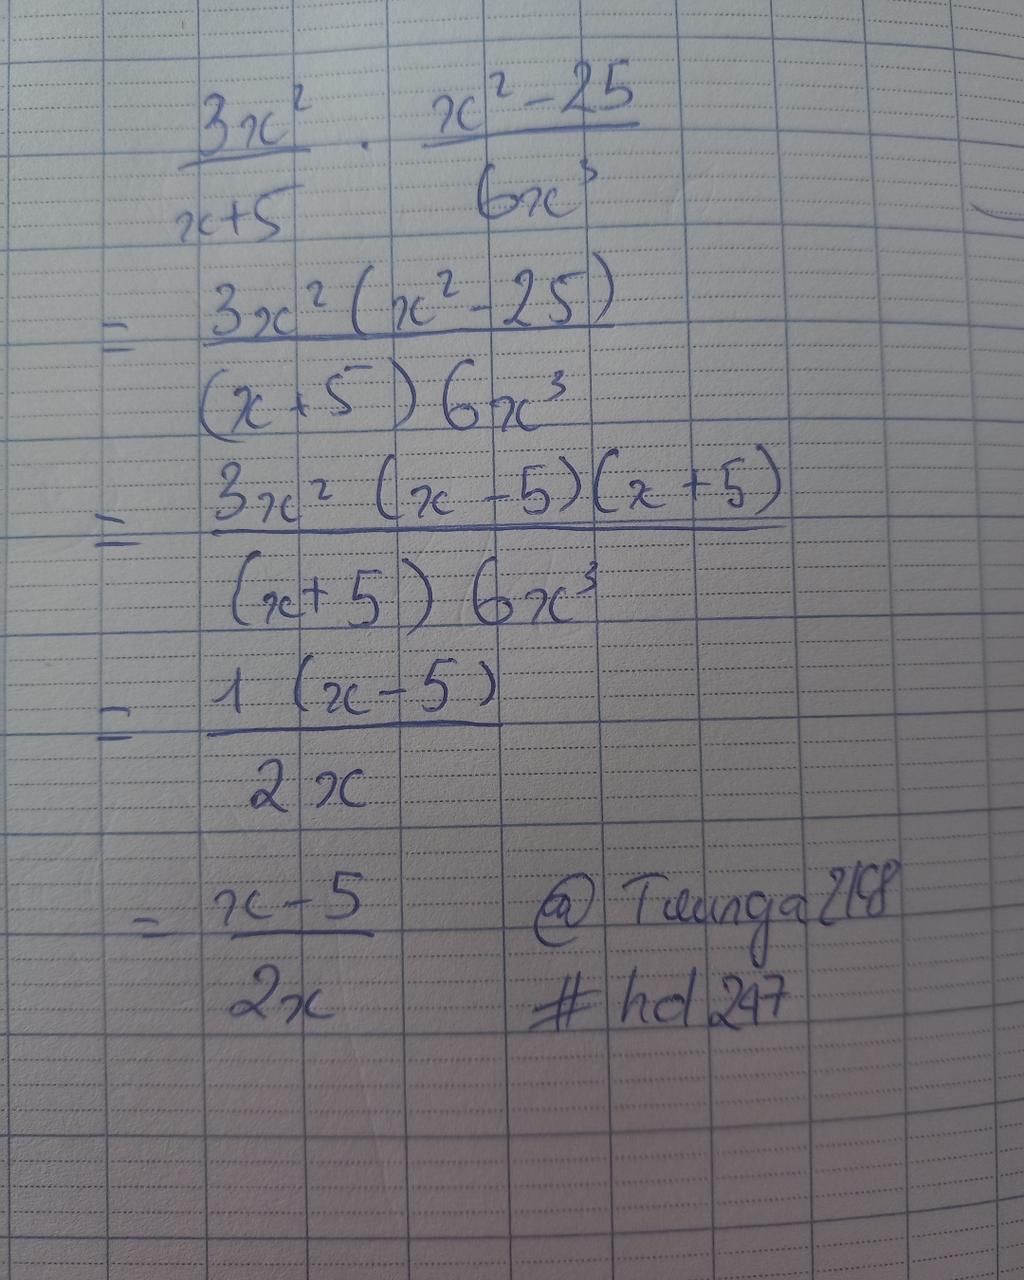 3x² / x+5 · x² - 25 / 6x³
= 3x² (x² - 25) / (x + 5) 6x³
= 3x² (x - 5)(x + 5) / (x + 5) 6x³
= 1 (x - 5) / 2x
= x - 5 / 2x
@
# hd 247